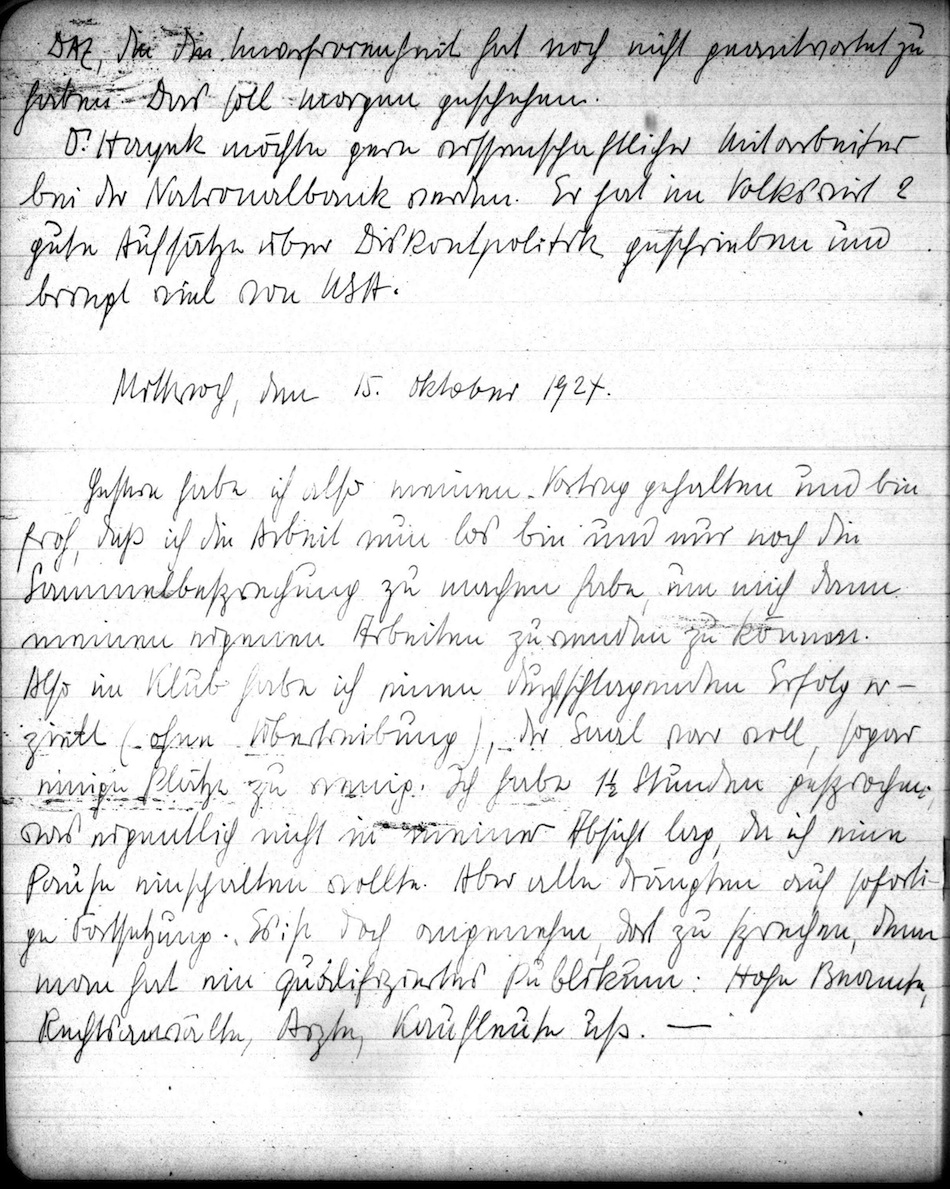 DAZ, die die Unverfrorenheit hat noch nicht geantwortet zu
haben. Das soll morgen geschehen.
Dr. Hayek möchte gern wissenschaftlicher Mitarbeiter
bei der Nationalbank werden. Er hat im Volkswirt 2
gute Aufsätze über Diskontpolitik geschrieben und
bringt viel von USA.
Mittwoch, den 15. Oktober 1924.
Gestern habe ich also meinen Vortrag gehalten und bin
froh, daß ich die Arbeit nun los bin und nur noch die
Sammelbesprechung zu machen habe, um mich dann
meinen eigenen Arbeiten zuwenden zu können.
Also im Klub habe ich einen durchschlagenden Erfolg er-
zielt (ohne Übertreibung), der Saal war voll, sogar
einige Plätze zu wenig. Ich habe 1½ Stunden gesprochen,
was eigentlich nicht in meiner Absicht lag, da ich eine
Pause einschalten wollte. Aber alle drängten auf soforti-
ge Fortsetzung. Es ist doch angenehm, dort zu sprechen, denn
man hat ein qualifiziertes Publikum: Hohe Beamte,
Rechtsanwälte, Ärzte, Kaufleute usf. —